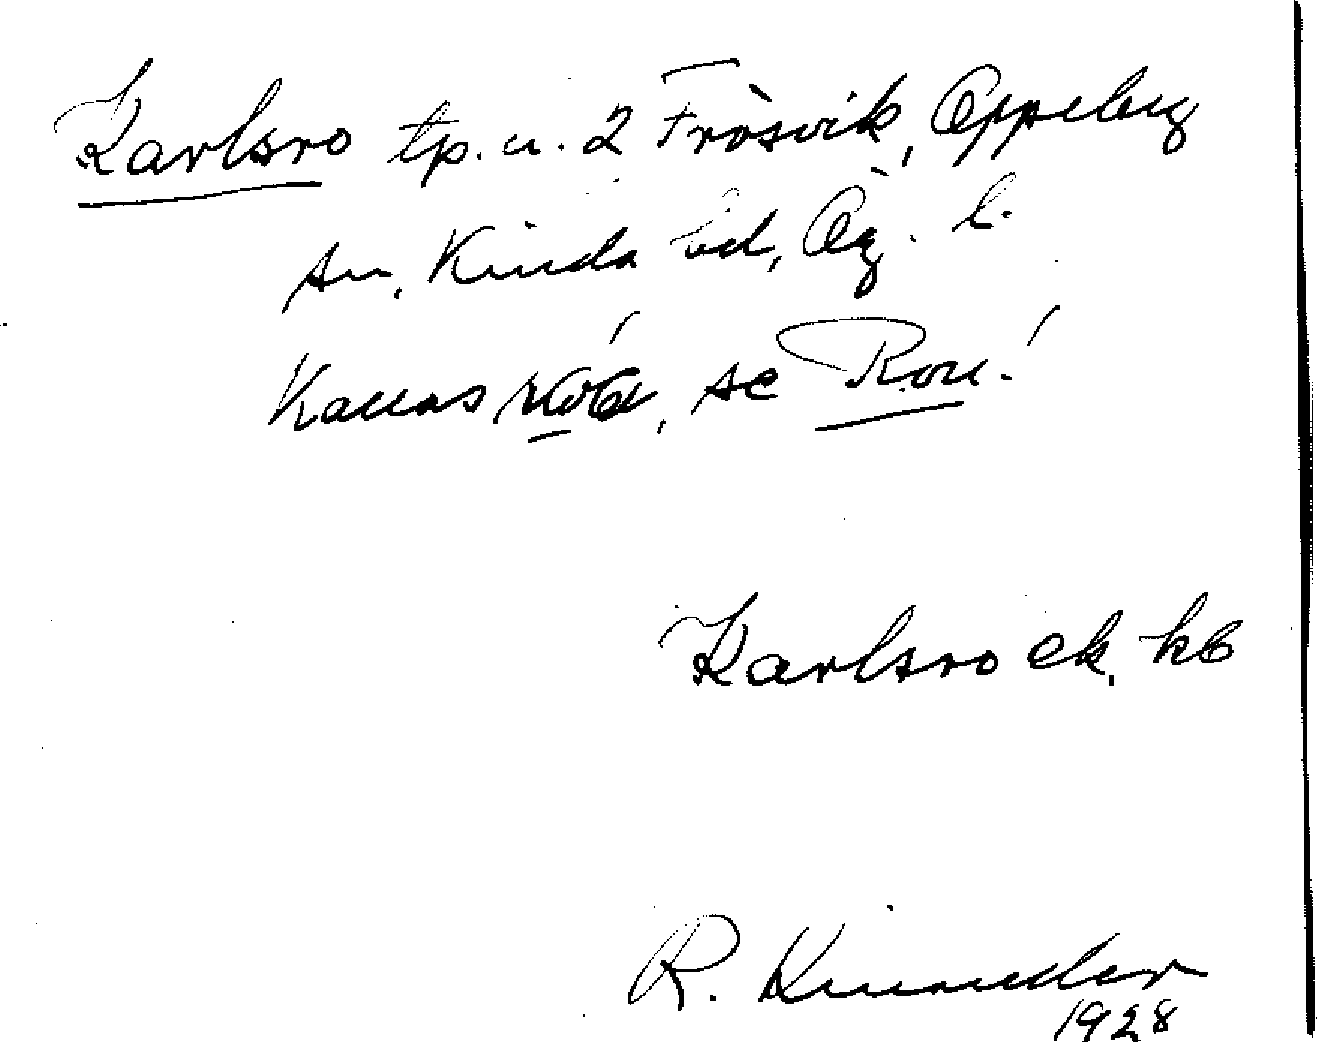 Karlsro tp. u. 2 Frösvik, Oppeby
sn, Kinda hd, Ög. l.
Kallas se Ron!
Karlsro ek. kb
R. Kinander
1928